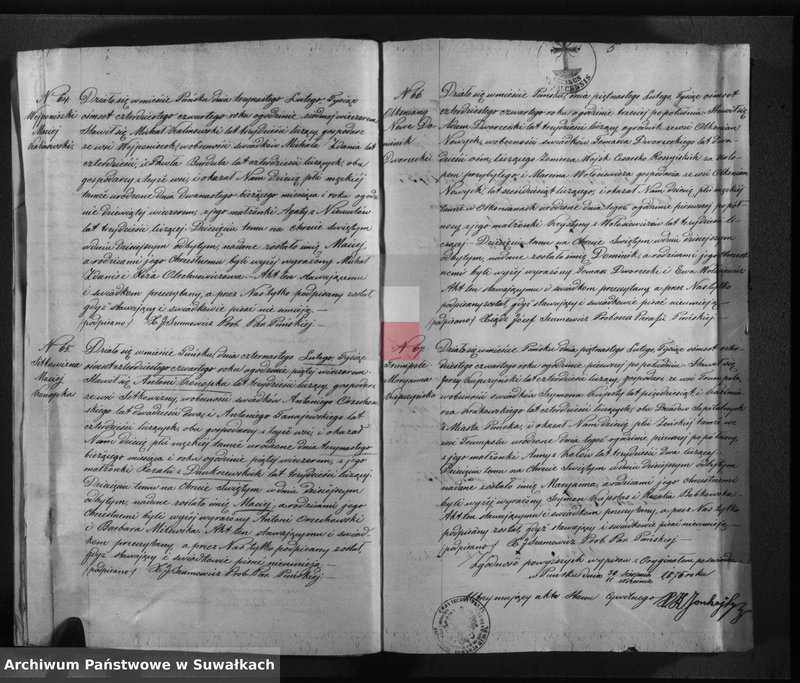 N 64.
Wojponiszki
Maciej
Kalinowski.
Działo się w mieście Puńsku dnia trzynastego Lutego, Tysiąc
ośmset czterdziestego czwartego roku o godzinie siódmej wieczorem.
Stawił się Michał Kalinowski lat trzydzieści liczący, gospodarz
ze wsi Wojponiszek, w obecności świadków Michała Zdania lat
czterdzieści, i Pawła Burdula lat czterdzieści liczących, obu
gospodarzy z tejże wsi, i okazał Nam Dziecię płci męzkiej
tamże urodzone dnia dwunastego bieżącego miesiąca i roku o godzi-
nie dziewiątej wieczorem, z jego małżonki Agaty z
lat trzydzieści liczącej. Dziecięciu temu na chrzcie świętym
w dniu dzisiejszym odbytym, nadane zostało imię Maciej,
a rodzicami jego Chrzestnemi byli wyżej wyrażony Michał
Zdanis i Róża Olechnowiczowa. Akt ten stawającemu
i świadkom przeczytany, a przez Nas tylko podpisany został,
gdyż stawający i świadkowie pisać nie umieją.—
(podpisano) X. J. Szumewicz Prob. Par. Puńskiej.—
N 65.
Sitkowizna
Maciej
Konopka
Działo się w mieście Puńsku dnia czternastego Lutego, Tysiąc
ośmset czterdziestego czwartego roku o godzinie piątej wieczorem.
Stawił się Antoni Konopka lat trzydzieści liczący, gospodarz
ze wsi Sitkowizny, w obecności świadków Antoniego Orzechow-
skiego lat dwadzieścia dwa, i Antoniego Tanajewskiego lat
czterdzieści liczących, obu gospodarzy z tejże wsi, i okazał
Nam dziecię płci męzkiej tamże urodzone dnia trzynastego
bieżącego miesiąca i roku o godzinie piątej wieczorem, z jego
małżonki Rozalii z lat trzydzieści liczącej.
Dziecięciu temu na Chrzcie Świętym w dniu dzisiejszym
odbytym nadane zostało imię Maciej, a rodzicami jego
Chrzestnemi byli wyżej wyrażony Antoni Orzechowski
i Barbara Milewska. Akt ten stawającemu i świad-
kom przeczytany, a przez Nas tylko podpisany został,
gdyż stawający i świadkowie pisać nieumieją.—
(podpisano) X. J. Szumewicz Prob. Par. Puńskiej.—
5
N 66.
Ołkiniany
Nowe Do-
minik
Dworzecki
Działo się w mieście Puńsku, dnia piętnastego Lutego, Tysiąc ośmset
czterdziestego czwartego roku o godzinie trzeciej popołudniu. Stawił się
Adam Dworzecki lat trzydzieści liczący, ogrodnik ze wsi Ołkinian
Nowych, w obecności świadków Tomasza Dworzeckiego lat dwa-
dzieścia ośm, liczącego Żołnierza Wojsk Cesarsko Rossyjskich za urlo-
pem przybyłego, i Marcina Wolosiewicza gospodarza ze wsi Ołkinian
Nowych, lat sześćdziesiąt liczącego, i okazał Nam dziecię płci męzkiej
tamże w Ołkinianach urodzone dnia tegoż o godzinie pierwszej po pół-
nocy, z jego małżonki Krystyny z Wolosiewiczów lat trzydzieści li-
czącej. Dziecięciu temu na Chrzcie Świętym w dniu dzisiejszym
odbytym, nadane zostało imię Dominik, a rodzicami jego Chrzest-
nemi byli wyżej wyrażony Tomasz Dworzecki i Ewa
Akt ten stawającemu i świadkom przeczytany, a przez Nas tylko
podpisany został, gdyż stawający i świadkowie pisać nieumieją.—
(podpisano) Xiądz Józef Szumewicz Proboszcz Parafii Puńskiej.—
N 67.
Trumpole
Maryanna
Kupszyńska
Działo się w mieście Puńsku, dnia piętnastego Lutego, Tysiąc ośmset czter-
dziestego czwartego roku o godzinie pierwszej po południu. Stawił się
Jerzy Kupszyński lat czterdzieści liczący, gospodarz ze wsi Trumpola,
w obecności świadków Szymona lat pięćdziesiąt, i Kazimie-
rza Krakowskiego lat czterdzieści liczących, obu Dziadów Szpitalnych
z Miasta Puńska, i okazał Nam dziecię płci Żeńskiej tamże we
wsi Trumpolu urodzone dnia tegoż o godzinie pierwszej po północy,
z jego małżonki Anny z lat trzydzieści dwa liczącej.
Dziecięciu temu na Chrzcie Świętym w dniu dzisiejszym odbytym
nadane zostało imię Maryanna, a rodzicami jego Chrzestnemi
byli wyżej wyrażony Szymon i Rozalia Bubłowska.
Akt ten stawającemu i świadkom przeczytany, a przez Nas tylko
podpisany został, gdyż stawający i świadkowie pisać nieumieją.—
(podpisano) X. J. Szumewicz Prob. Par. Puńskiej.—
Zgodność powyższych wypisów z Oryginałem poświadczam.
w Puńsku dnia 30 sierpnia / 11 września 1876 roku
Utrzymujący akta Stanu Cywilnego
Archiwum Państwowe w Suwałkach